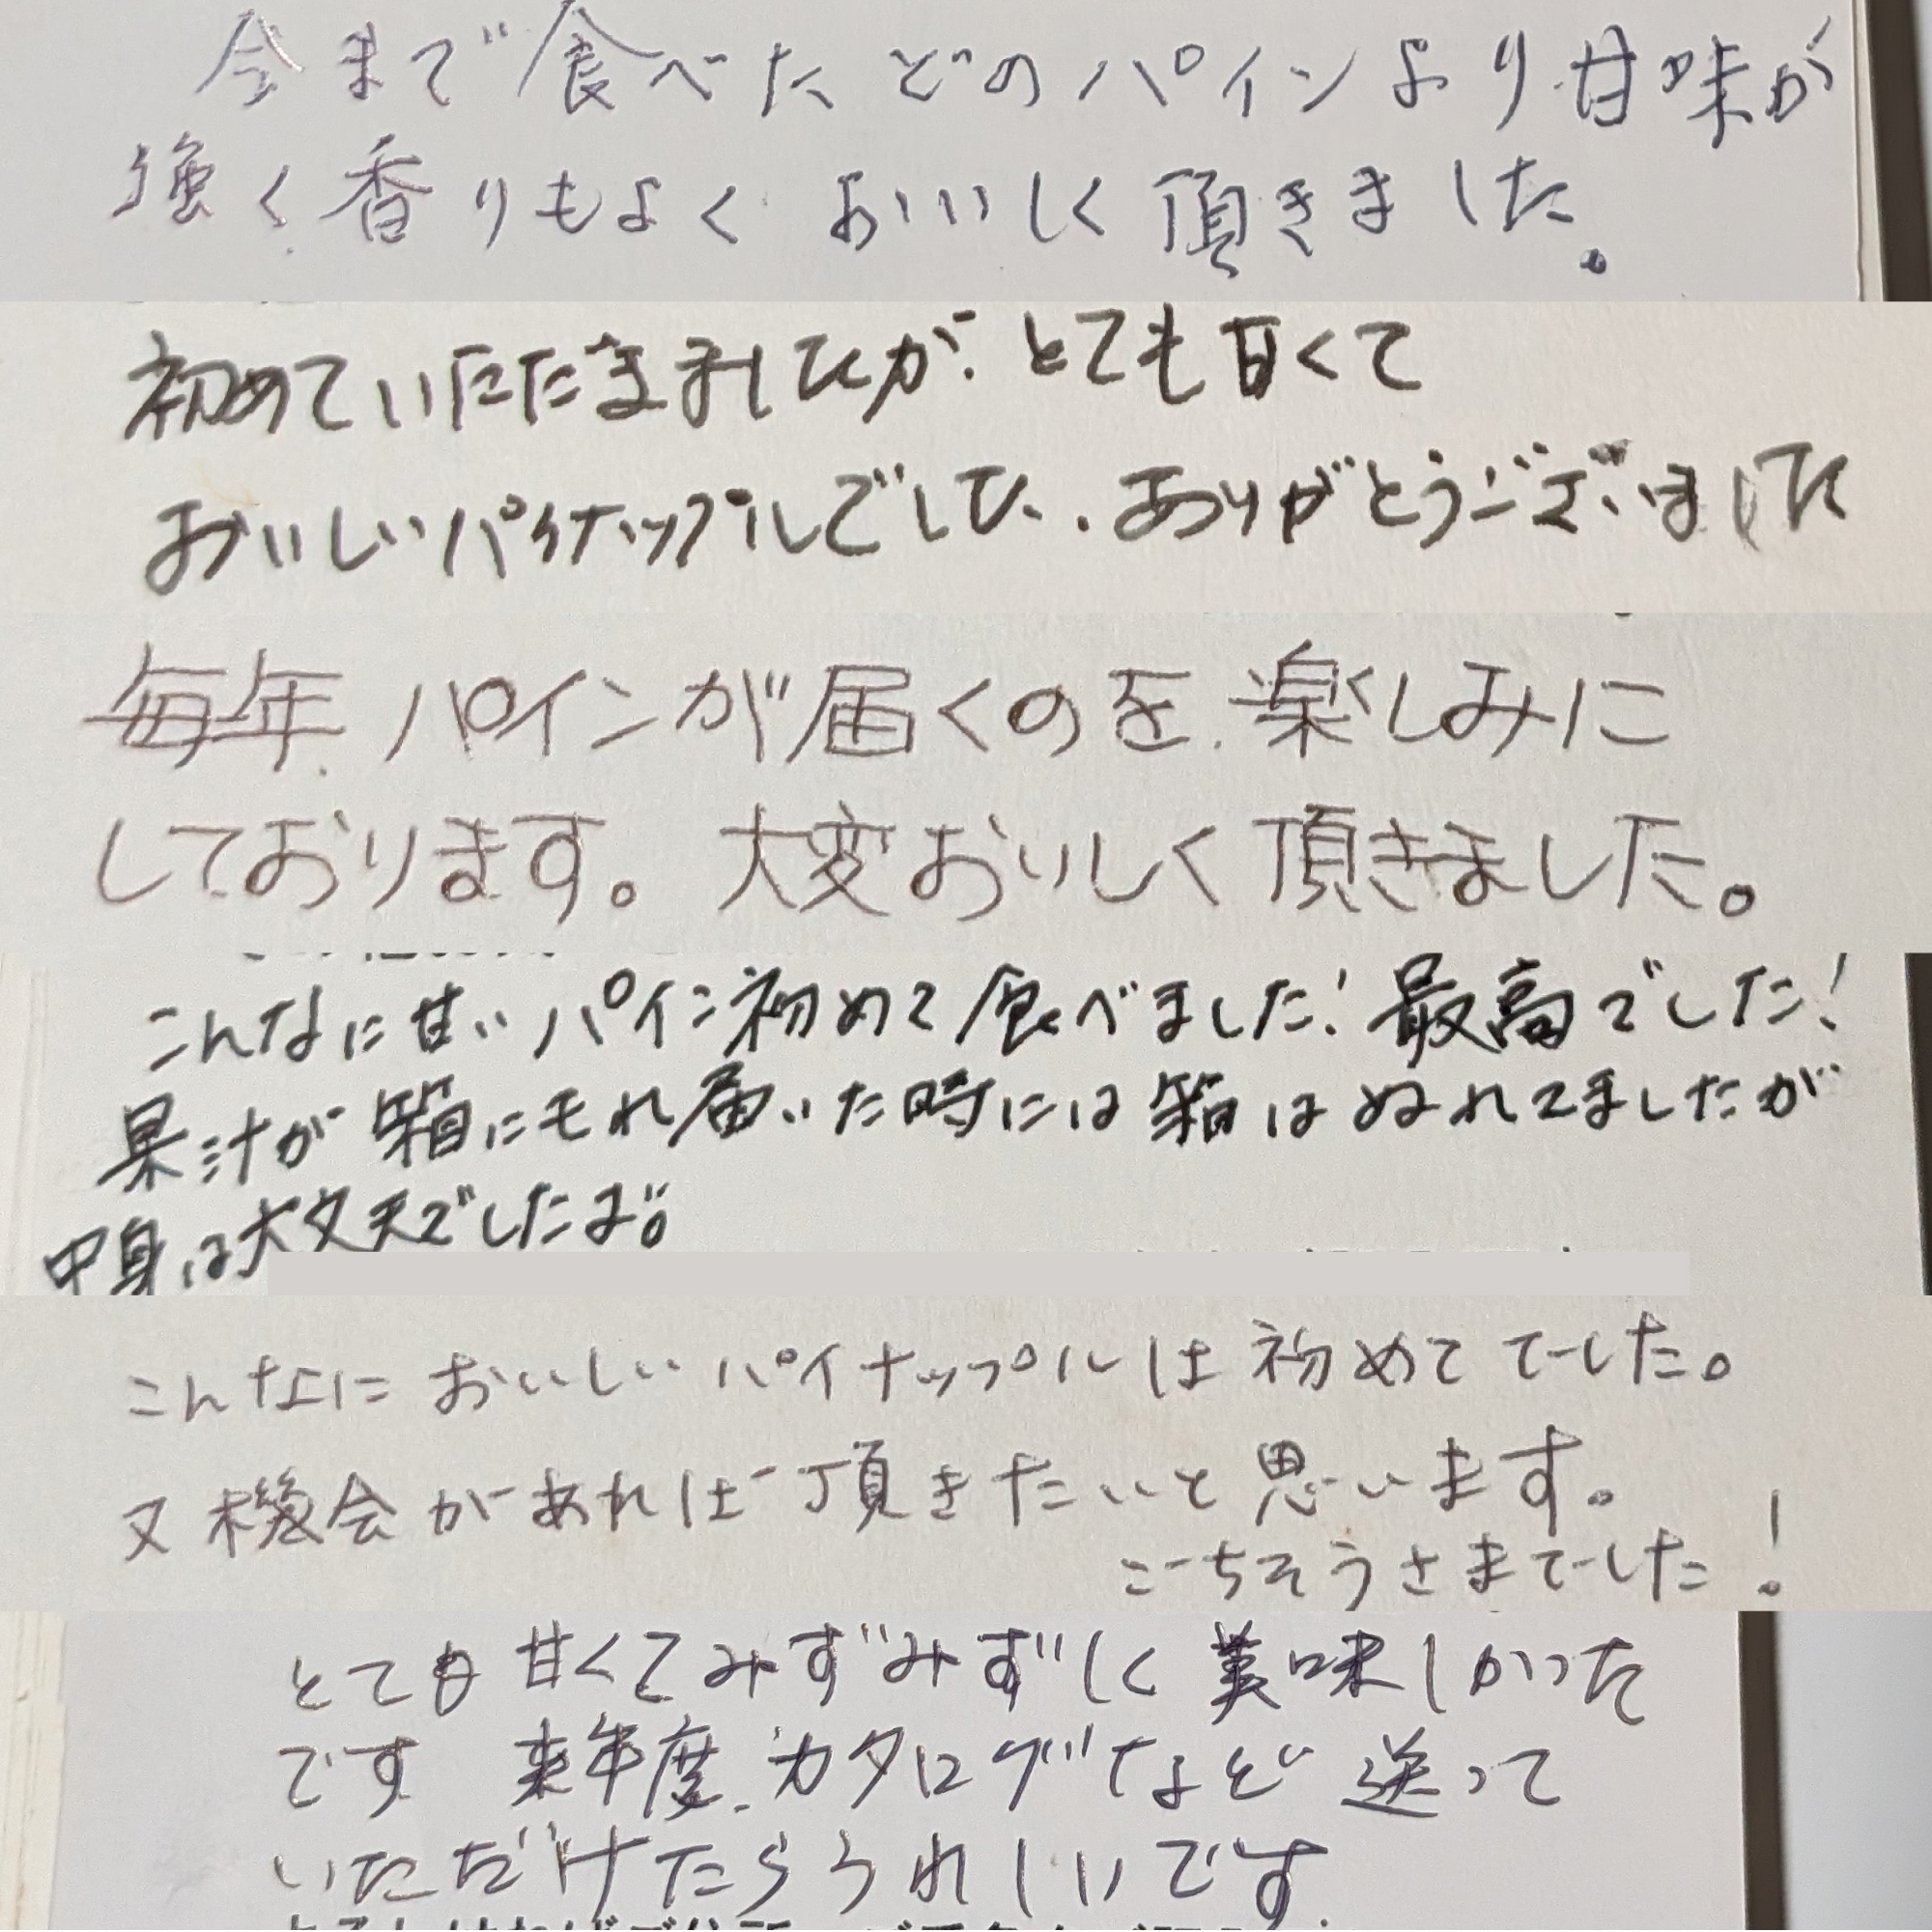 今まで食べたどのパインより甘味が
強く香りもよくおいしく頂きました。
初めていただきましたが、とても甘くて
おいしいパイナップルでした。ありがとうございました
毎年パインが届くのを楽しみに
しております。大変おいしく頂きました。
こんなに甘いパイン初めて食べました!最高でした!
果汁が箱にもれ届いた時には箱はぬれてましたが
中身は大丈夫でしたよ。
こんなにおいしいパイナップルは初めてでした。
又機会があれば頂きたいと思います。
ごちそうさまでした!
とても甘くてみずみずしく美味しかった
です 来年度、カタログなど送って
いただけたらうれしいです